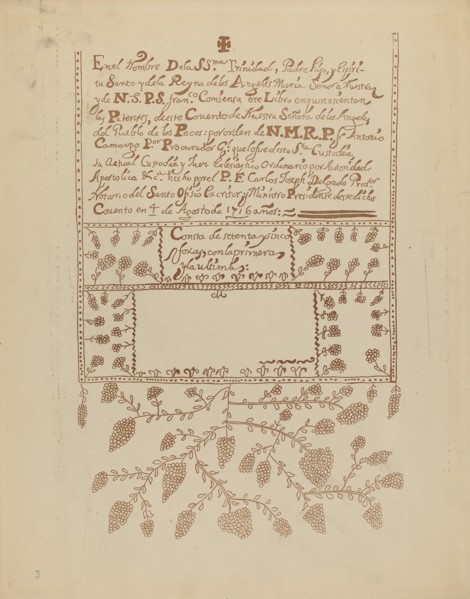 En el Nombre De la SSma Trinidad, Padre Hijo, y Espiri-
tu Santo y de la Reyna de los Angeles Maria Señora Nuestra
y de N.S.P.S. Franco Comiensa este Libro en que se asientan
los de este Convento de Nuestra Señora de los Angeles
del Pueblo de los Pecos: por orden de N.M.R.P. Fr Antonio
Camargo Por Procurador Gl que fue de esta Sta Custodia,
su Actual Custodio y Juez Eclesiastico Ordinario por Autoridad
Apostolica &c. Hecho por el P. F. Carlos Joseph Delgado Predor
Notorio del Santo Ofisio Excrisor y Ministro Presidente de dicho
Covento en 1 de Agosto de 1716 años:
Consta de setenta y sinco
foxas con la primera
y la ultima:
3